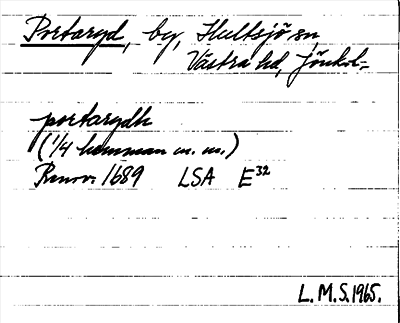 Portaryd, by, Hultsjö sn,
Västra hd, Jönköl=
portarydh
(1/4 hemman m. m.)
Renov. 1689 LSA E32
L. M. S. 1965.